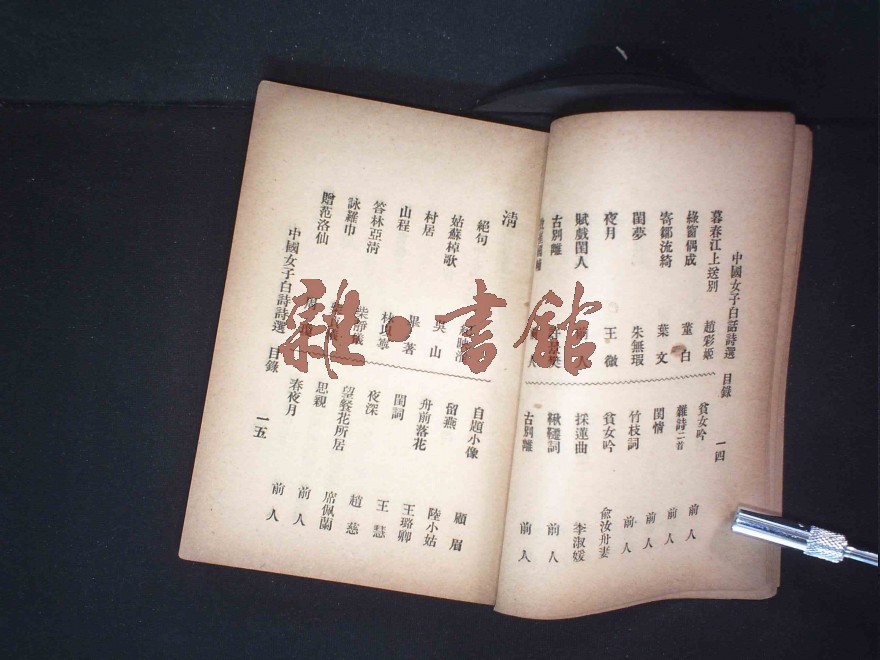 中國女子白話詩選 目錄 一四
暮春江上送別 趙彩姬
綠窗偶成 董白
寄鄒流綺 葉文
閨夢 朱無瑕
夜月 王微
賦戲閨人
古別離
貧女吟 前人
雜詩二首 前人
閨情 前人
竹枝詞 前人
貧女吟 俞汝舟妻
採蓮曲 李淑媛
鞦韆詞 前人
古別離 前人
清
絕句
姑蘇棹歌
村居 吳山
山程 畢著
答林亞清
詠羅巾 柴靜儀
贈范洛仙
自題小像 顧眉
留燕 陸小姑
舟前落花 王璐卿
閨詞 王慧
夜深 趙慈
望餐花所居 席佩蘭
思親 前人
春夜月 前人
中國女子白話詩選 目錄 一五
雜·書館